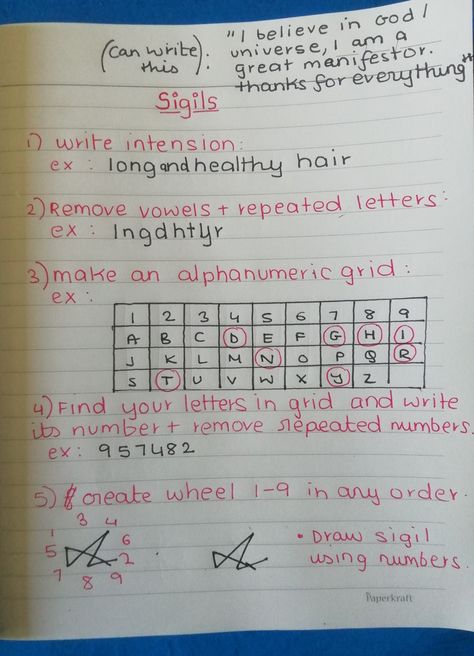 (can write this): "I believe in God/
universe, I am a
great manifestor.
thanks for everything"
Sigils
1) write intension:
ex : long and healthy hair
2) Remove vowels + repeated letters:
ex : lngdhtyr
3) make an alphanumeric grid:
ex :
1 2 3 4 5 6 7 8 9
A B C D E F G H I
J K L M N O P Q R
S T U V W X Y Z
4) Find your letters in grid and write
its number + remove repeated numbers.
ex: 957482
5) create wheel 1-9 in any order.
3 4
1 6
5 2
7 8 9
• Draw sigil
using numbers.
Paperkraft